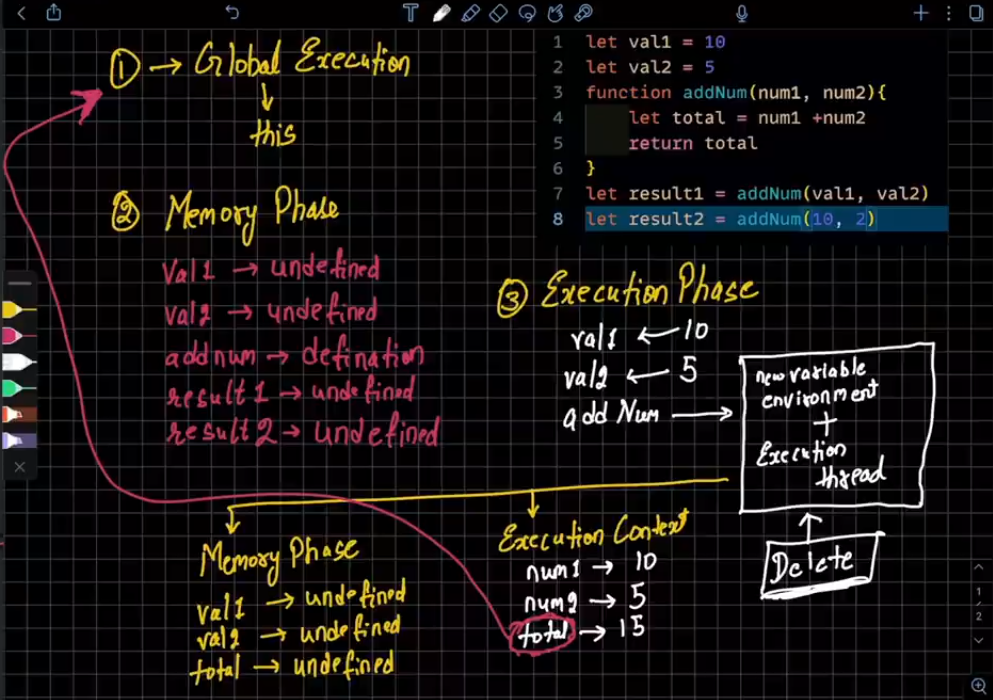 ① → Global Execution
this
② Memory Phase
val1 → undefined
val2 → undefined
addnum → defination
result1 → undefined
result2 → undefined
1 let val1 = 10
2 let val2 = 5
3 function addNum(num1, num2){
4 let total = num1 +num2
5 return total
6 }
7 let result1 = addNum(val1, val2)
8 let result2 = addNum(10, 2)
③ Execution Phase
val1 ← 10
val2 ← 5
addNum →
new variable
environment
+
Execution
thread
Delete
Memory Phase
val1 → undefined
val2 → undefined
total → undefined
Execution Context
num1 → 10
num2 → 5
total → 15
1
2